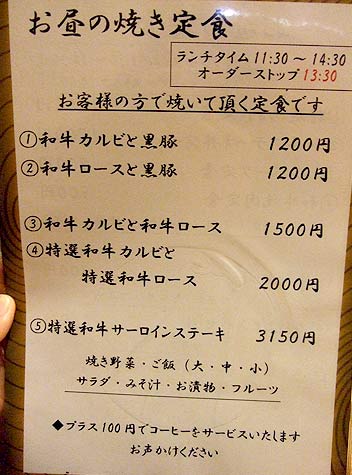 お昼の焼き定食
ランチタイム 11:30 〜 14:30
オーダーストップ 13:30
お客様の方で焼いて頂く定食です
①和牛カルビと黒豚 1200円
②和牛ロースと黒豚 1200円
③和牛カルビと和牛ロース 1500円
④特選和牛カルビと
特選和牛ロース 2000円
⑤特選和牛サーロインステーキ 3150円
焼き野菜・ご飯（大・中・小）
サラダ・みそ汁・お漬物・フルーツ
◆プラス100円でコーヒーをサービスいたします
お声かけください